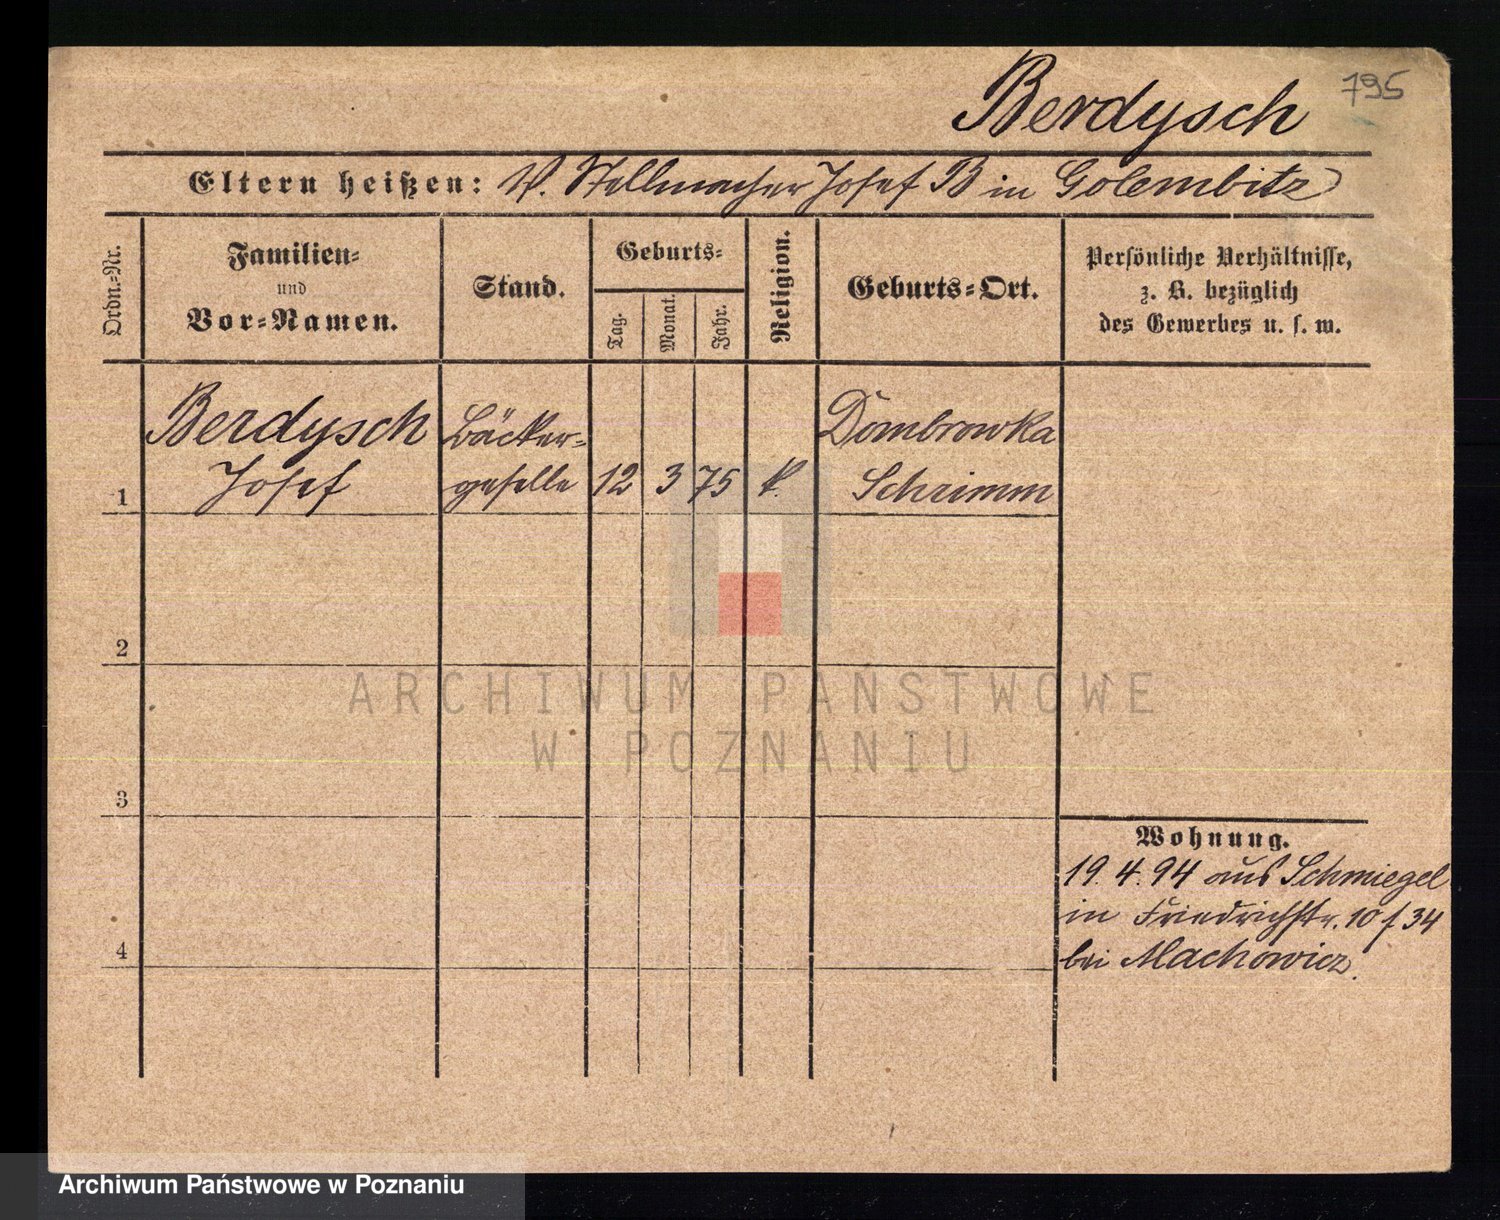 Berdysch 795
Eltern heißen: V. Stellmacher Josef B in Golembitz
Ordn.-Nr.
Familien-
und
Vor-Namen.
Stand.
Geburts-
Tag.
Monat.
Jahr.
Religion.
Geburts-Ort.
Persönliche Verhältnisse,
z. B. bezüglich
des Gewerbes u. s. w.
Berdysch Bäcker- Dombrowka
1 Josef geselle 12 3 75 k. Schrimm
2
ARCHIWUM PAŃSTWOWE
W POZNANIU
3
Wohnung.
19. 4. 94 aus Schmiegel
in Friedrichstr. 10 f 34
4
bei Machowicz.
Archiwum Państwowe w Poznaniu